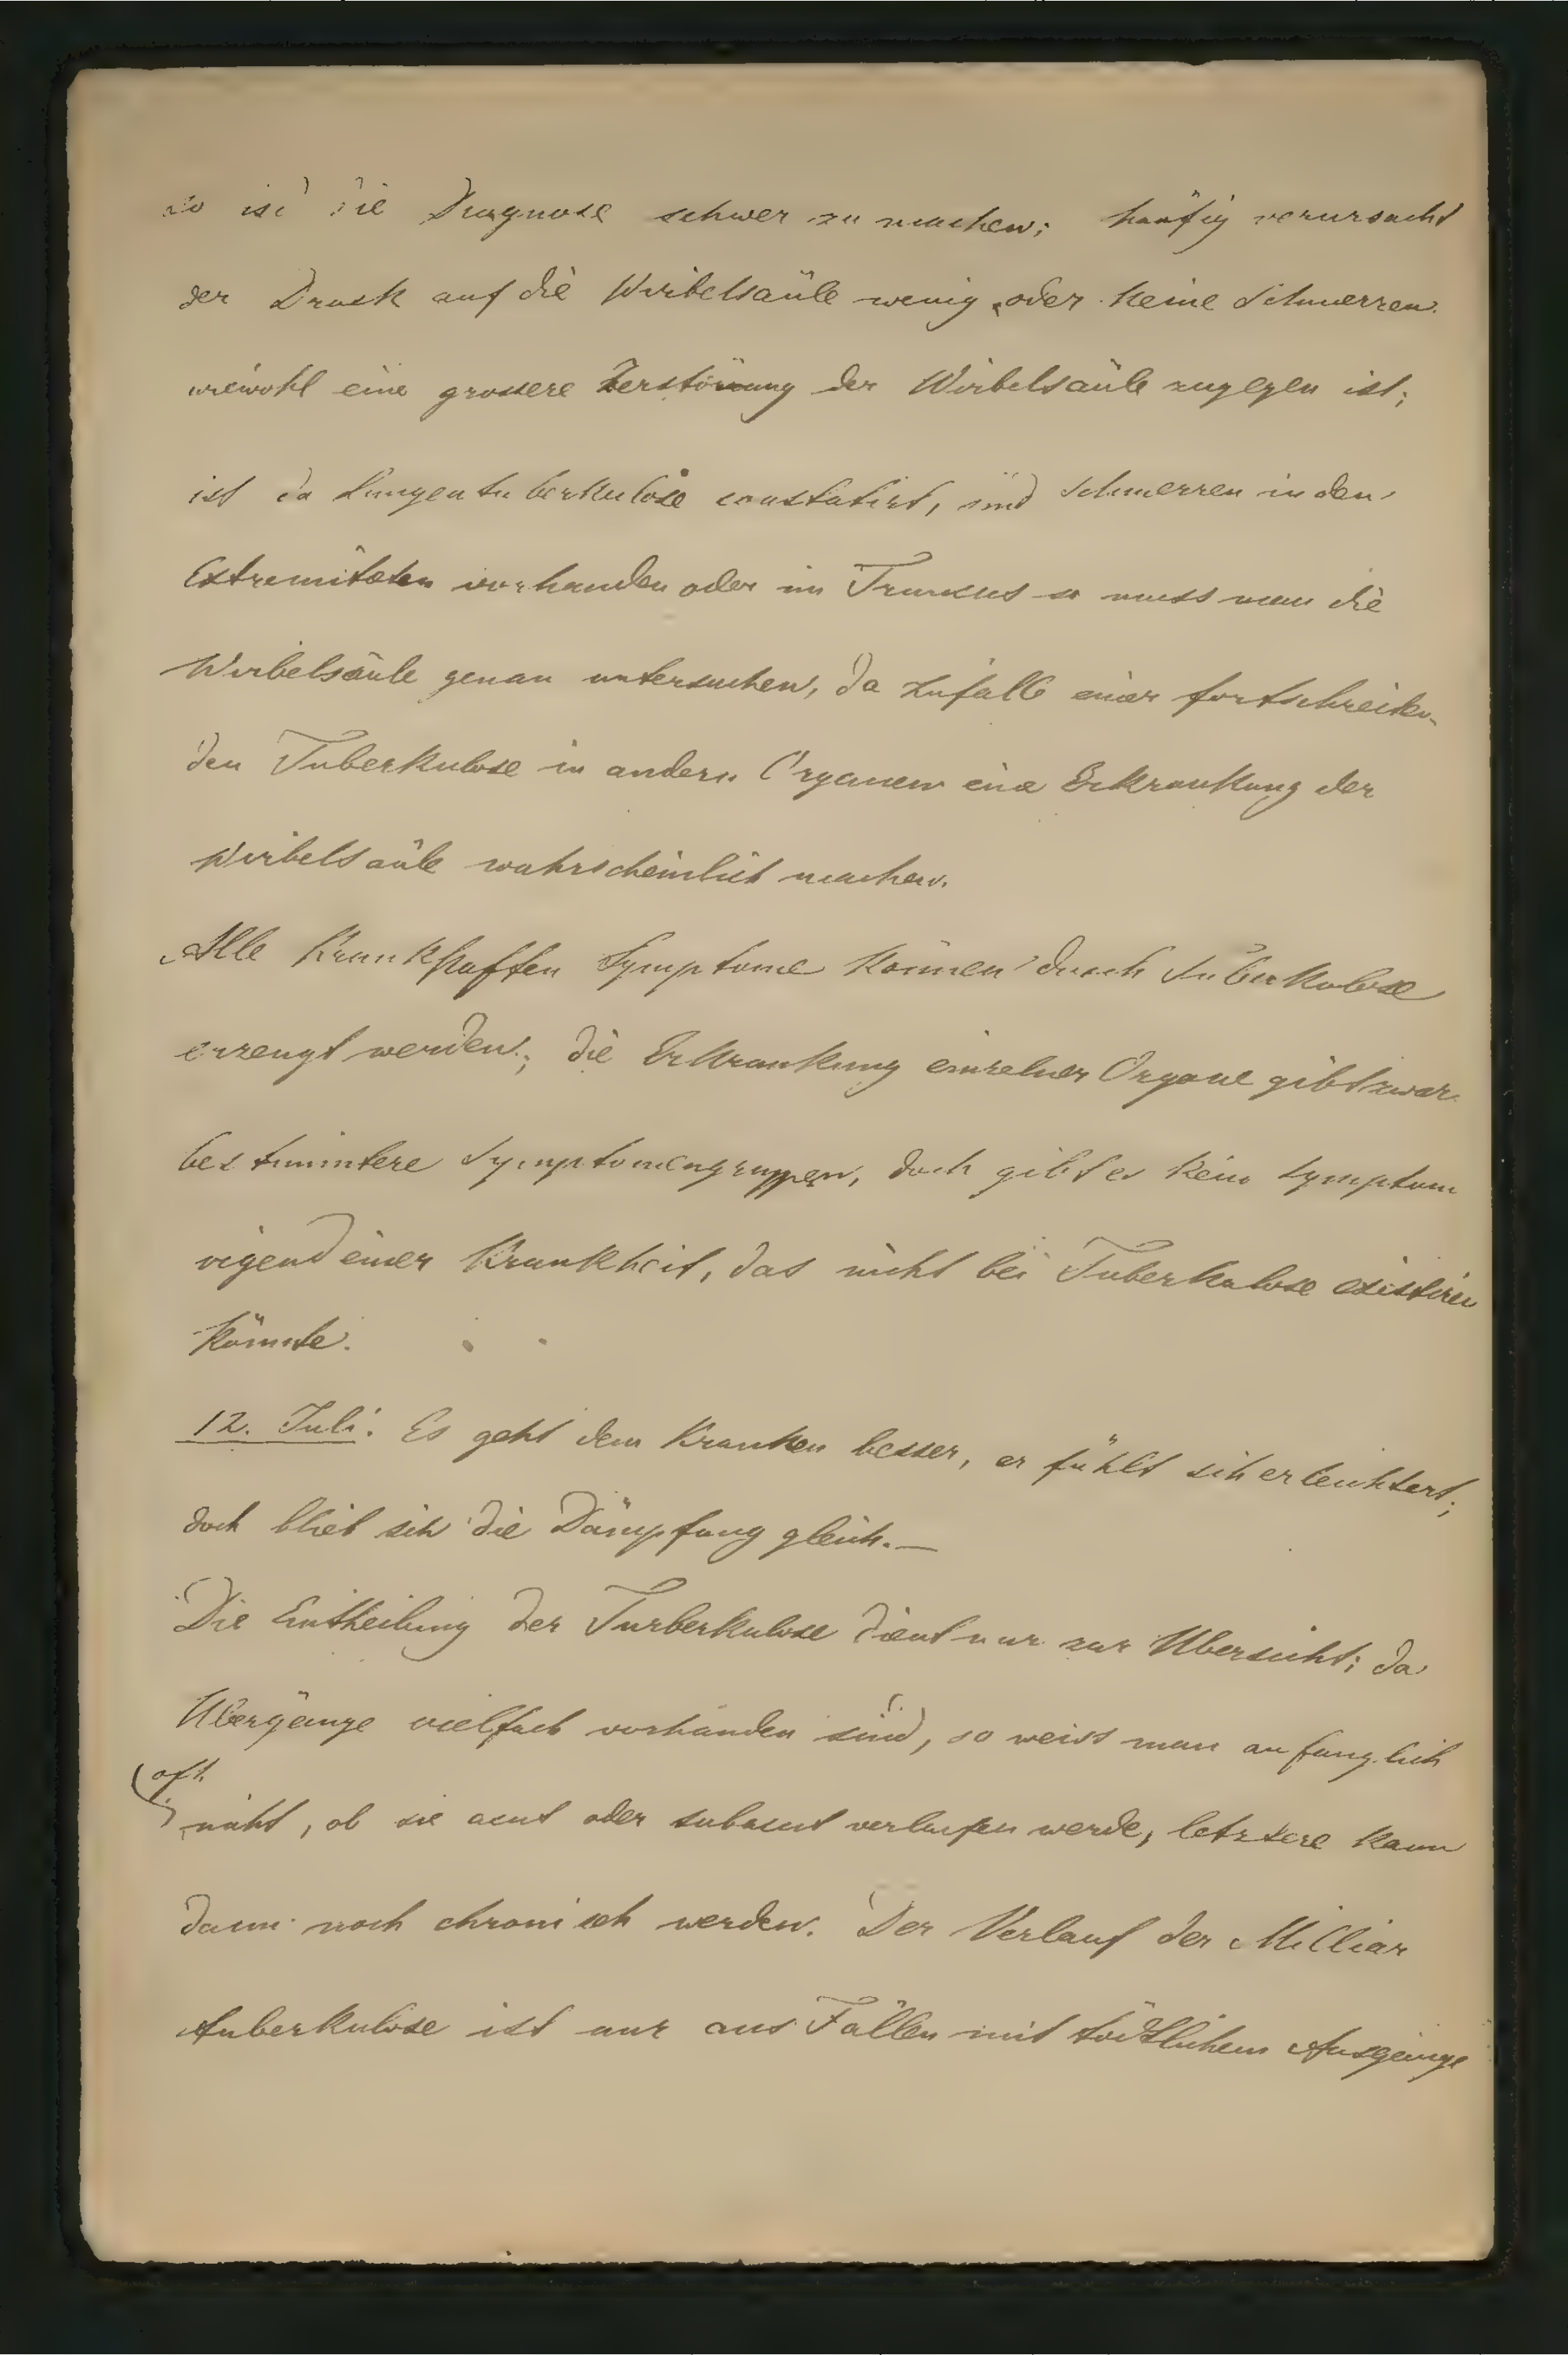 so ist die Diagnose schwer zu machen; haüfig verursacht
der Druck auf die Wirbelsaüle wenig oder keine Schmerzen
wiewohl eine grossere Zerstörung der Wirbelsaüle zugegen ist;
ist da Lungentuberkulose constatirt, sind Schmerzen in den
Extremitäten vorhanden oder im Truncus so muss man die
Wirbelsäule genau untersuchen, da Zufälle einer fortschreiten-
den Tuberkulose in andern Organen eine Erkrankung der
Wirbelsaüle wahrscheinlich machen.
Alle Krankhaften Symptome können durch Tuberkulose
erzeugt werden; die Erkrankung einzelner Organe gibt zwar
bestimmtere Symptomengruppen, doch gibt es kein Symptom
irgend einer Krankheit, das nicht bei Tuberkulose existiren
könnte.
12. Juli. Es geht dem Kranken besser, er fühlt sich erleichtert;
doch blieb sich die Dämpfung gleich. —
Die Eintheilung der Turberkulose dient nur zur Ubersicht; da
Übergänge vielfach vorhanden sind, so weiss man anfänglich
oft
nicht, ob sie acut oder subacut verlaufen werde, letztere kann
dann noch chronisch werden. Der Verlauf der Milliar
tuberkulose ist nur aus Fällen mit tödtlichem Ausgange